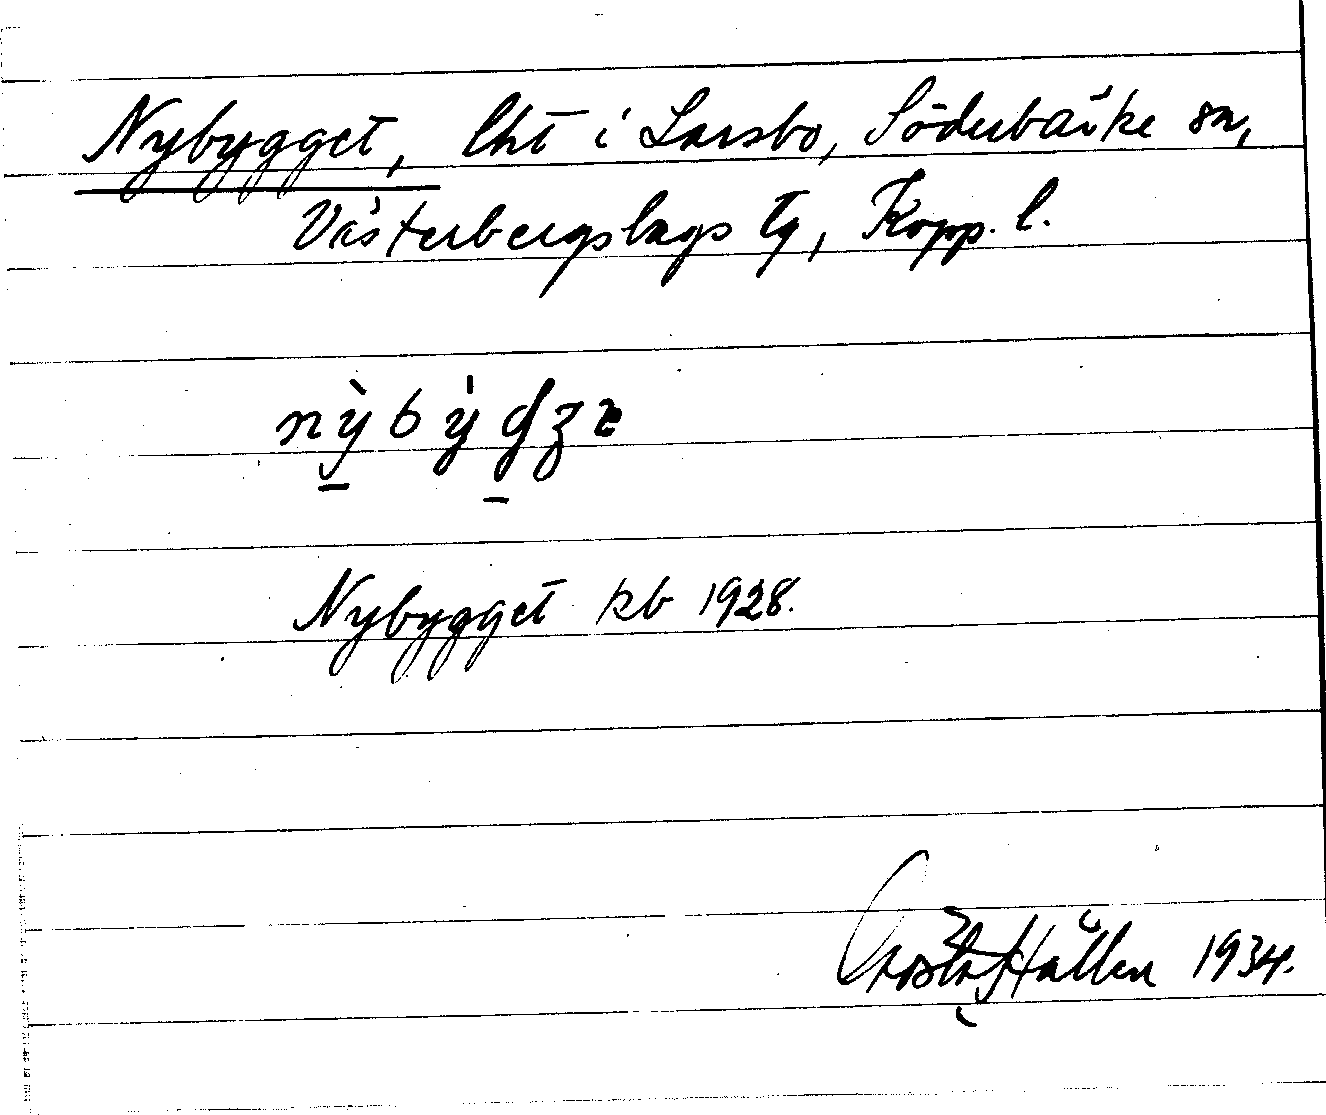 Nybygget, lht i Larsbo, Söderbärke sn,
Västerbergslags tg, Kopp. l.
Nybygget kb 1928.
Hållén 1934.